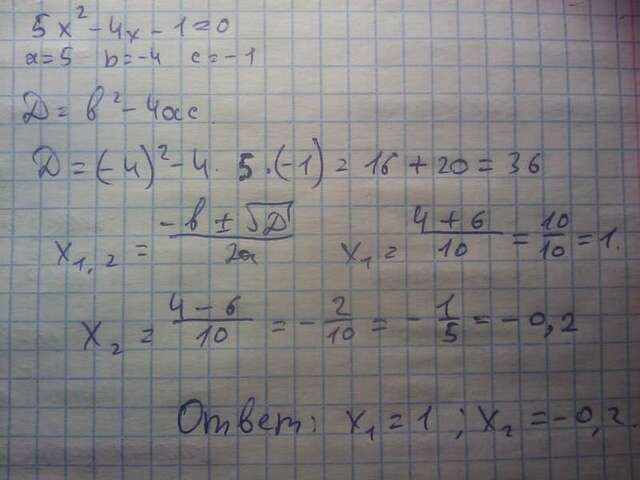 5x² - 4x - 1 = 0
a = 5 b = -4 c = -1
D = b² - 4ac.
D = (-4)² - 4 · 5 · (-1) = 16 + 20 = 36
x₁,₂ = (-b ± √D)/2a x₁ = (4 + 6)/10 = 10/10 = 1.
x₂ = (4 - 6)/10 = -2/10 = -1/5 = -0,2
Ответ: x₁ = 1 ; x₂ = -0,2.